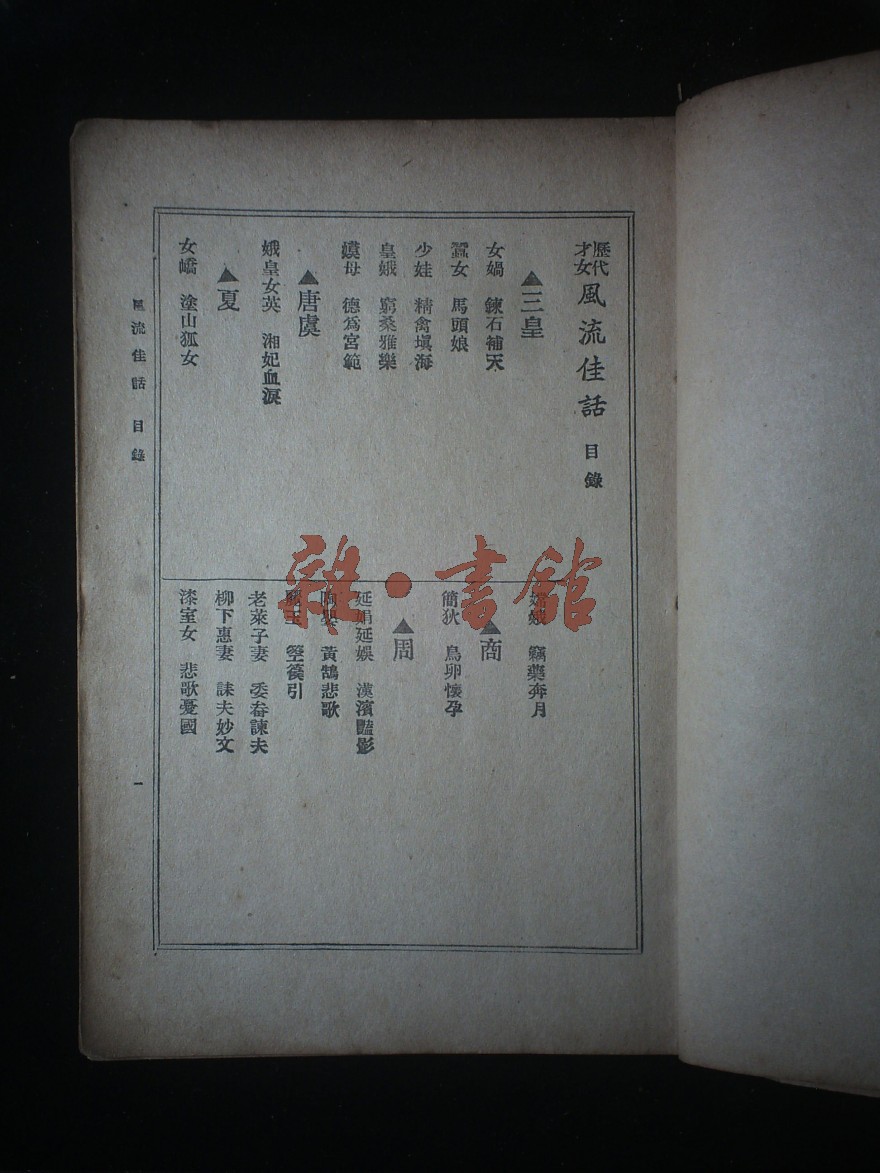 歷代才女風流佳話 目錄
▲三皇
女媧 鍊石補天
蠶女 馬頭娘
少娃 精禽塡海
皇娥 窮桑雅樂
嫫母 德爲宮範
▲唐虞
娥皇女英 湘妃血淚
▲夏
女嶠 塗山狐女
嫦娥 竊藥奔月
▲商
簡狄 鳥卵懷孕
▲周
延娟延娛 漢濱豔影
陶嬰 黃鵠悲歌
麗玉 箜篌引
老萊子妻 委畚諫夫
柳下惠妻 誄夫妙文
漆室女 悲歌憂國
風流佳話 目錄
一
雜·書館